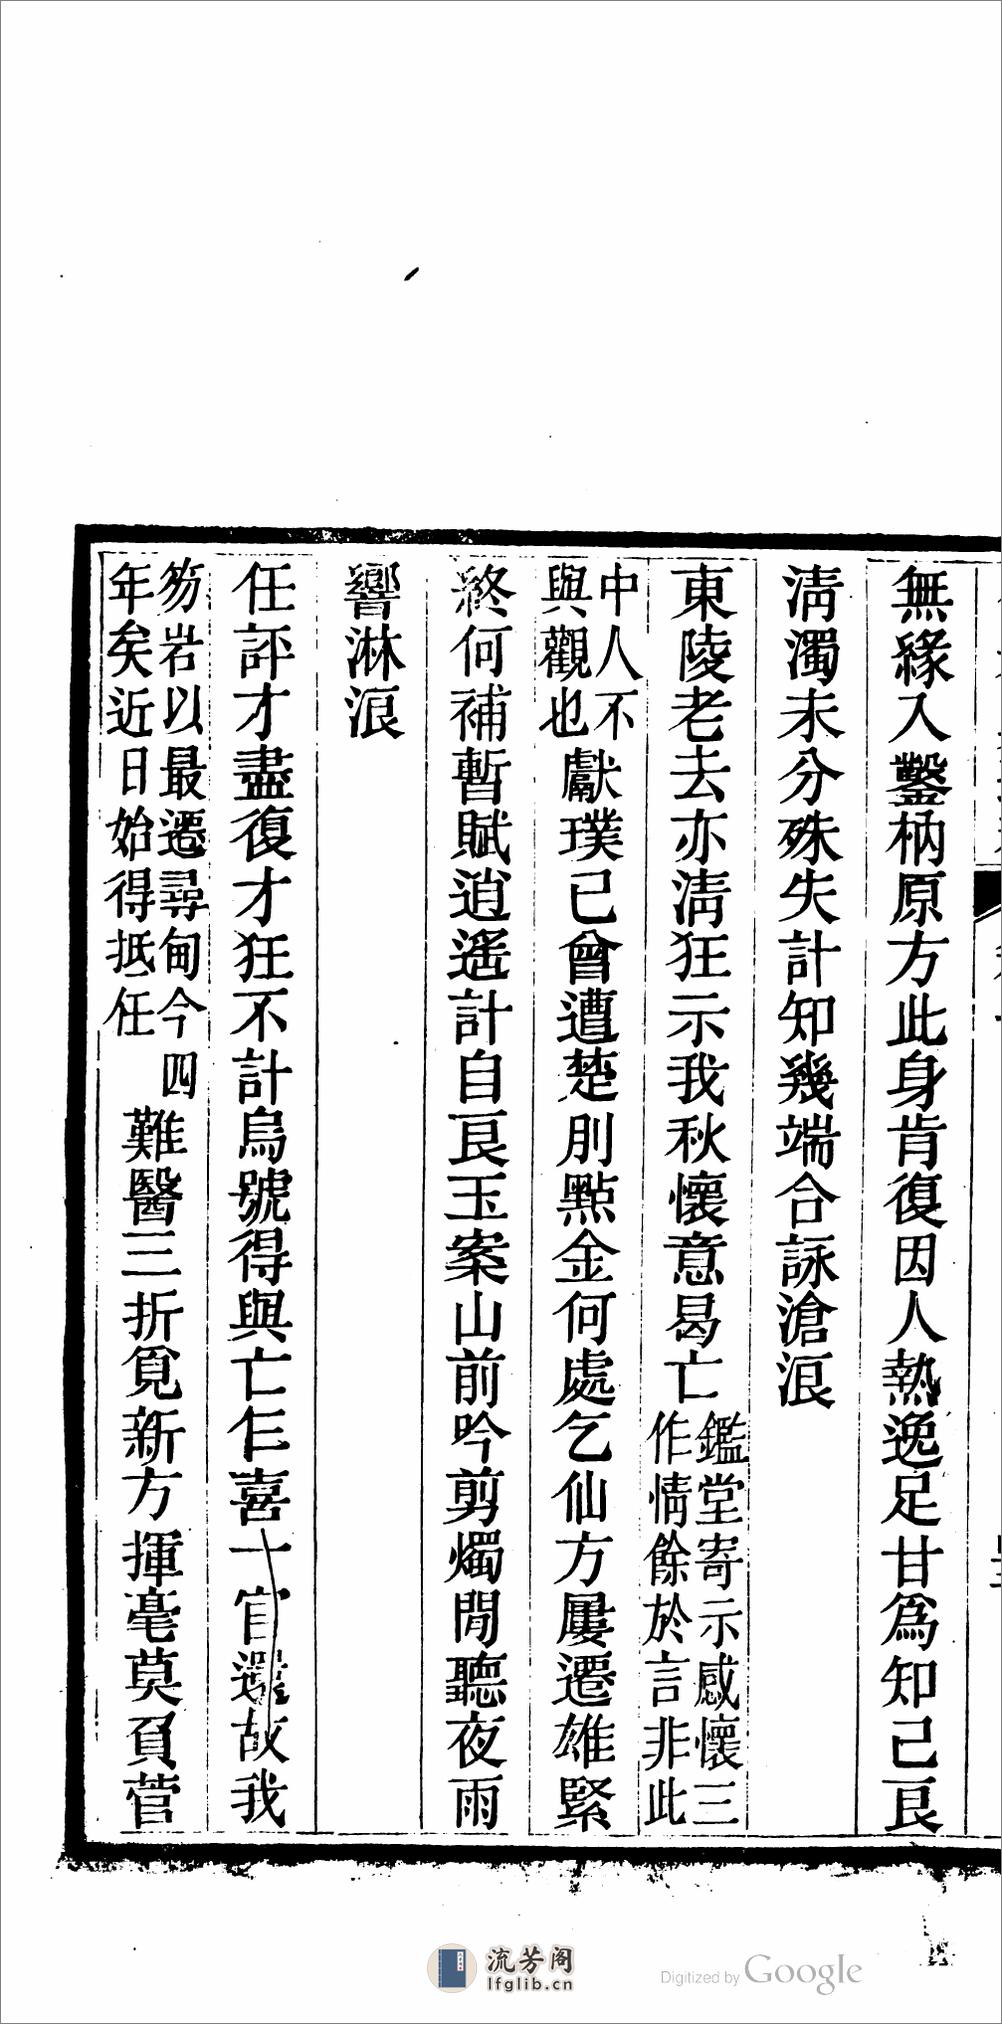 無緣入鑿枘原方此身肯復因人熱逸足甘爲知己良
清濁未分殊失計知幾端合詠滄浪
東陵老去亦清狂示我秋懷意曷亡
鑑堂寄示感懷三
作情餘於言非此
中人不
與觀也
獻璞已曾遭楚刖點金何處乞仙方屢遷雄緊
終何補暫賦逍遙計自良玉案山前吟剪燭閒聽夜雨
響淋浪
任評才盡復才狂不計烏號得與亡乍喜一官還故我
笏岩以最遷尋甸今四
年矣近日始得抵任
難醫三折覓新方揮毫莫負菅
流芳阁
lfglib.cn
Digitized by Google